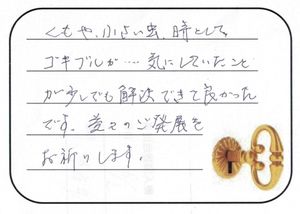 くもや、小さい虫、時として
ゴキブリが‥‥気にしていたこと
が少しでも解決できて良かった
です。益々のご発展を
お祈りします。